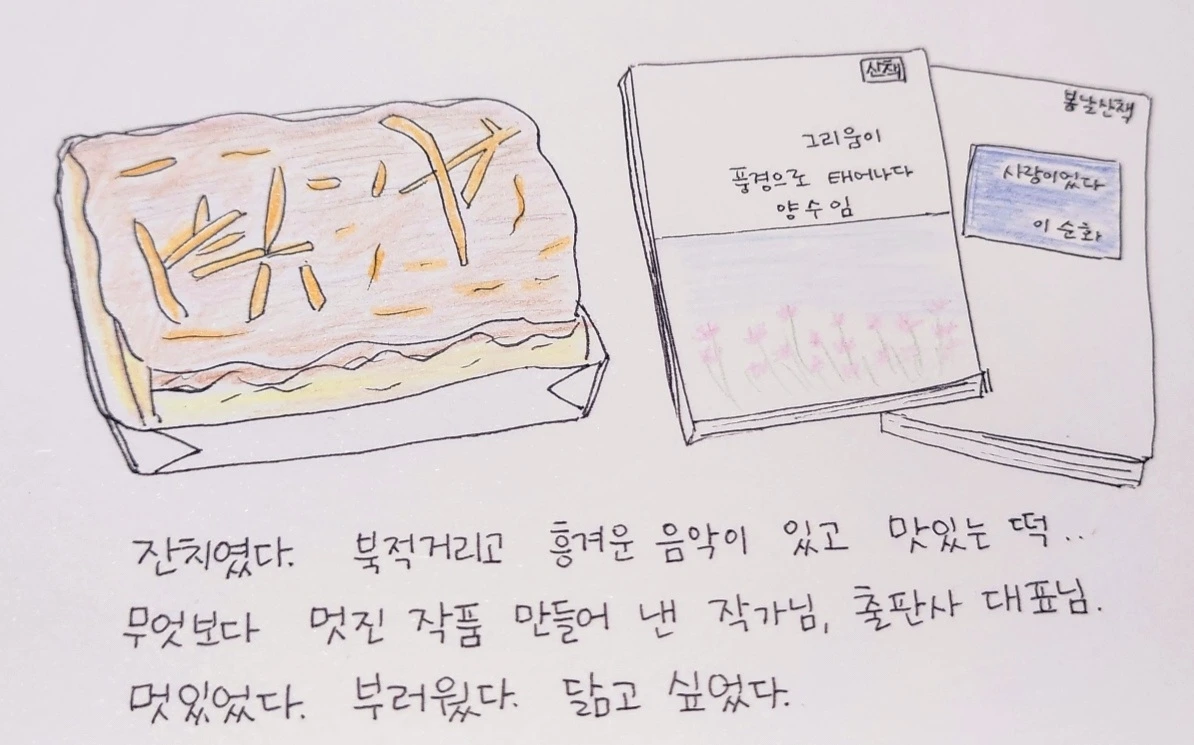 산책
그리움이
풍경으로 태어나다
양수임
봄날산책
사랑이었다
이순화
잔치였다. 북적거리고 흥겨운 음악이 있고 맛있는 떡..
무엇보다 멋진 작품 만들어 낸 작가님, 출판사 대표님.
멋있었다. 부러웠다. 닮고 싶었다.